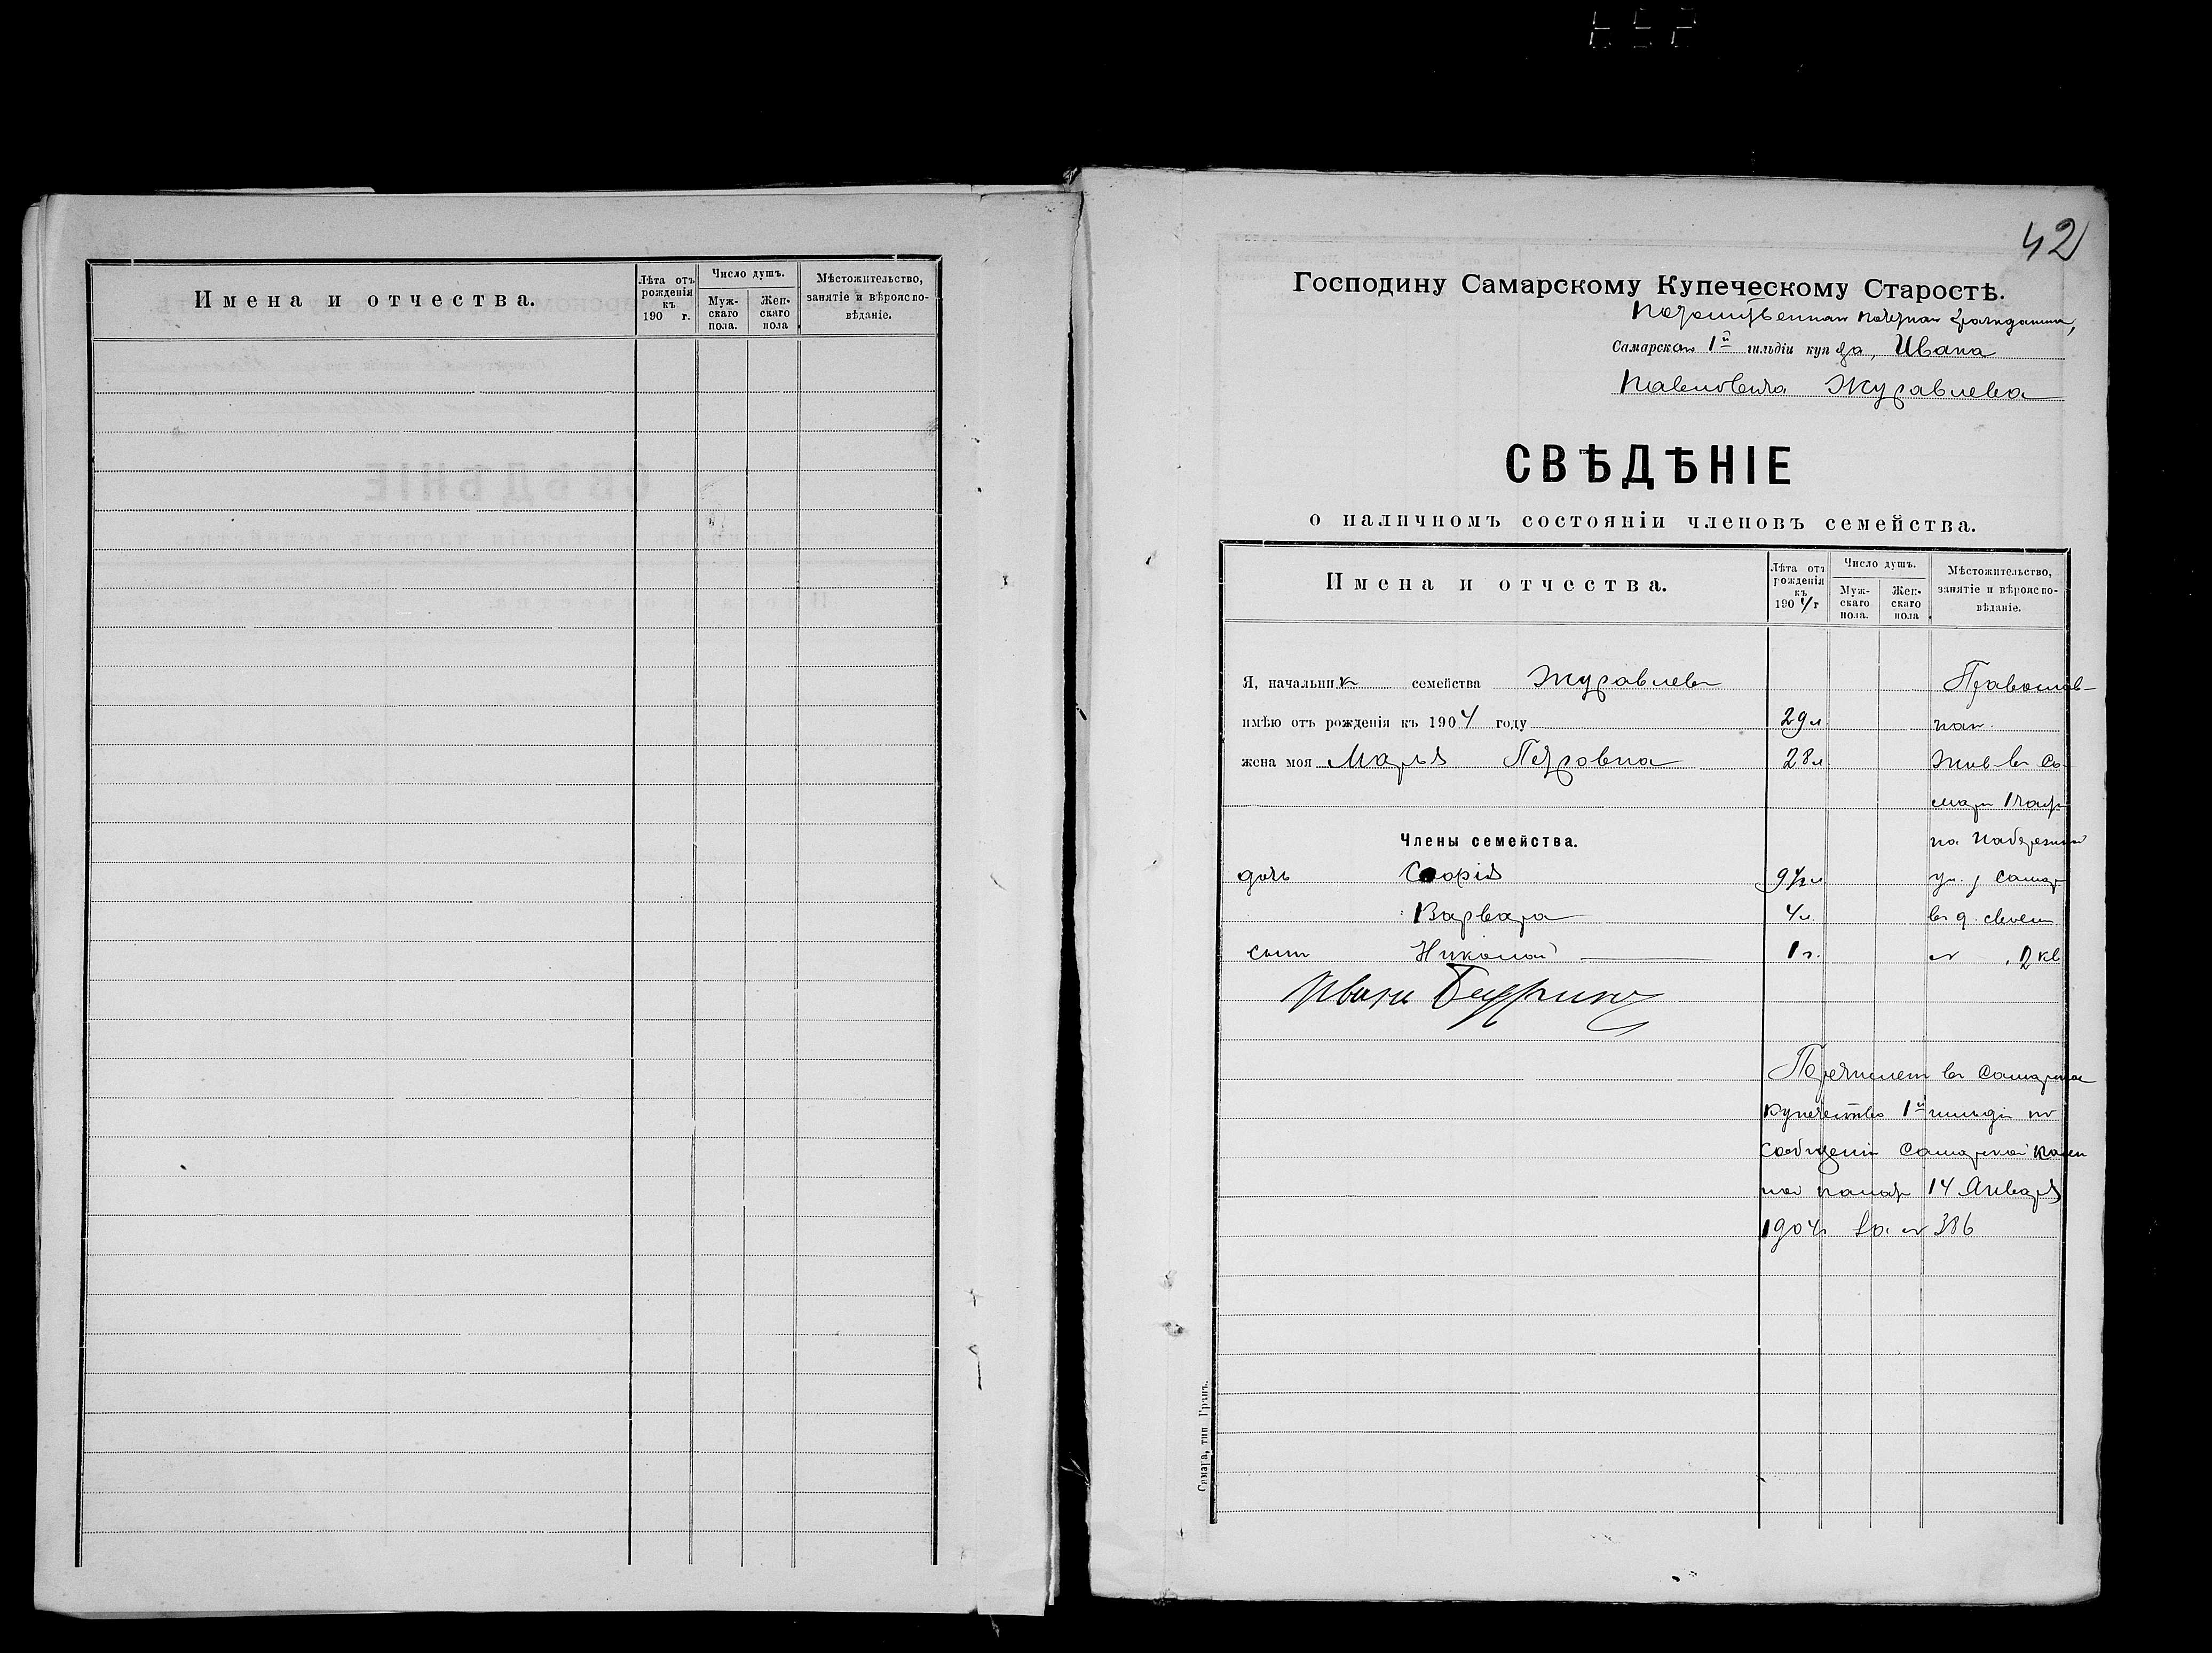 Имена и отчества.
Лѣта отъ рожденія къ 190 г.
Число душъ.
Муж-скаго пола.
Жен-скаго пола
Мѣстожительство, занятіе и вѣроиспо-вѣданіе.
42
Господину Самарскому Купеческому Старостѣ.
Потомственнаго почетнаго гражданина,
Самарскаго 1й гильдіи купца, Ивана
Павловича Журавлева
СВѢДѢНІЕ
о наличномъ состояніи членовъ семейства.
Имена и отчества.
Лѣта отъ рожденія къ 1904 г
Число душъ.
Муж-скаго пола.
Жен-скаго пола
Мѣстожительство, занятіе и вѣроиспо-вѣданіе.
Я, начальникъ семейства Журавлевъ Православ-
имѣю отъ рожденія къ 1904 году 29 л наго.
жена моя Марья Петровна 28 л Жив. въ Са-
марѣ
Члены семейства. на Набережной
дочь Софія 9½ л ул. р. Самар
Варвара 4 л. въ д. своем
сынъ Николай 1 г. № 2 кв
Иванъ
Перечисленъ въ Самарское
купечество 1й гильдіи по
сообщенію Самарской Казен
ной палаты 14 Января
1904 г. за № 386
Самара, тип. Гранъ.